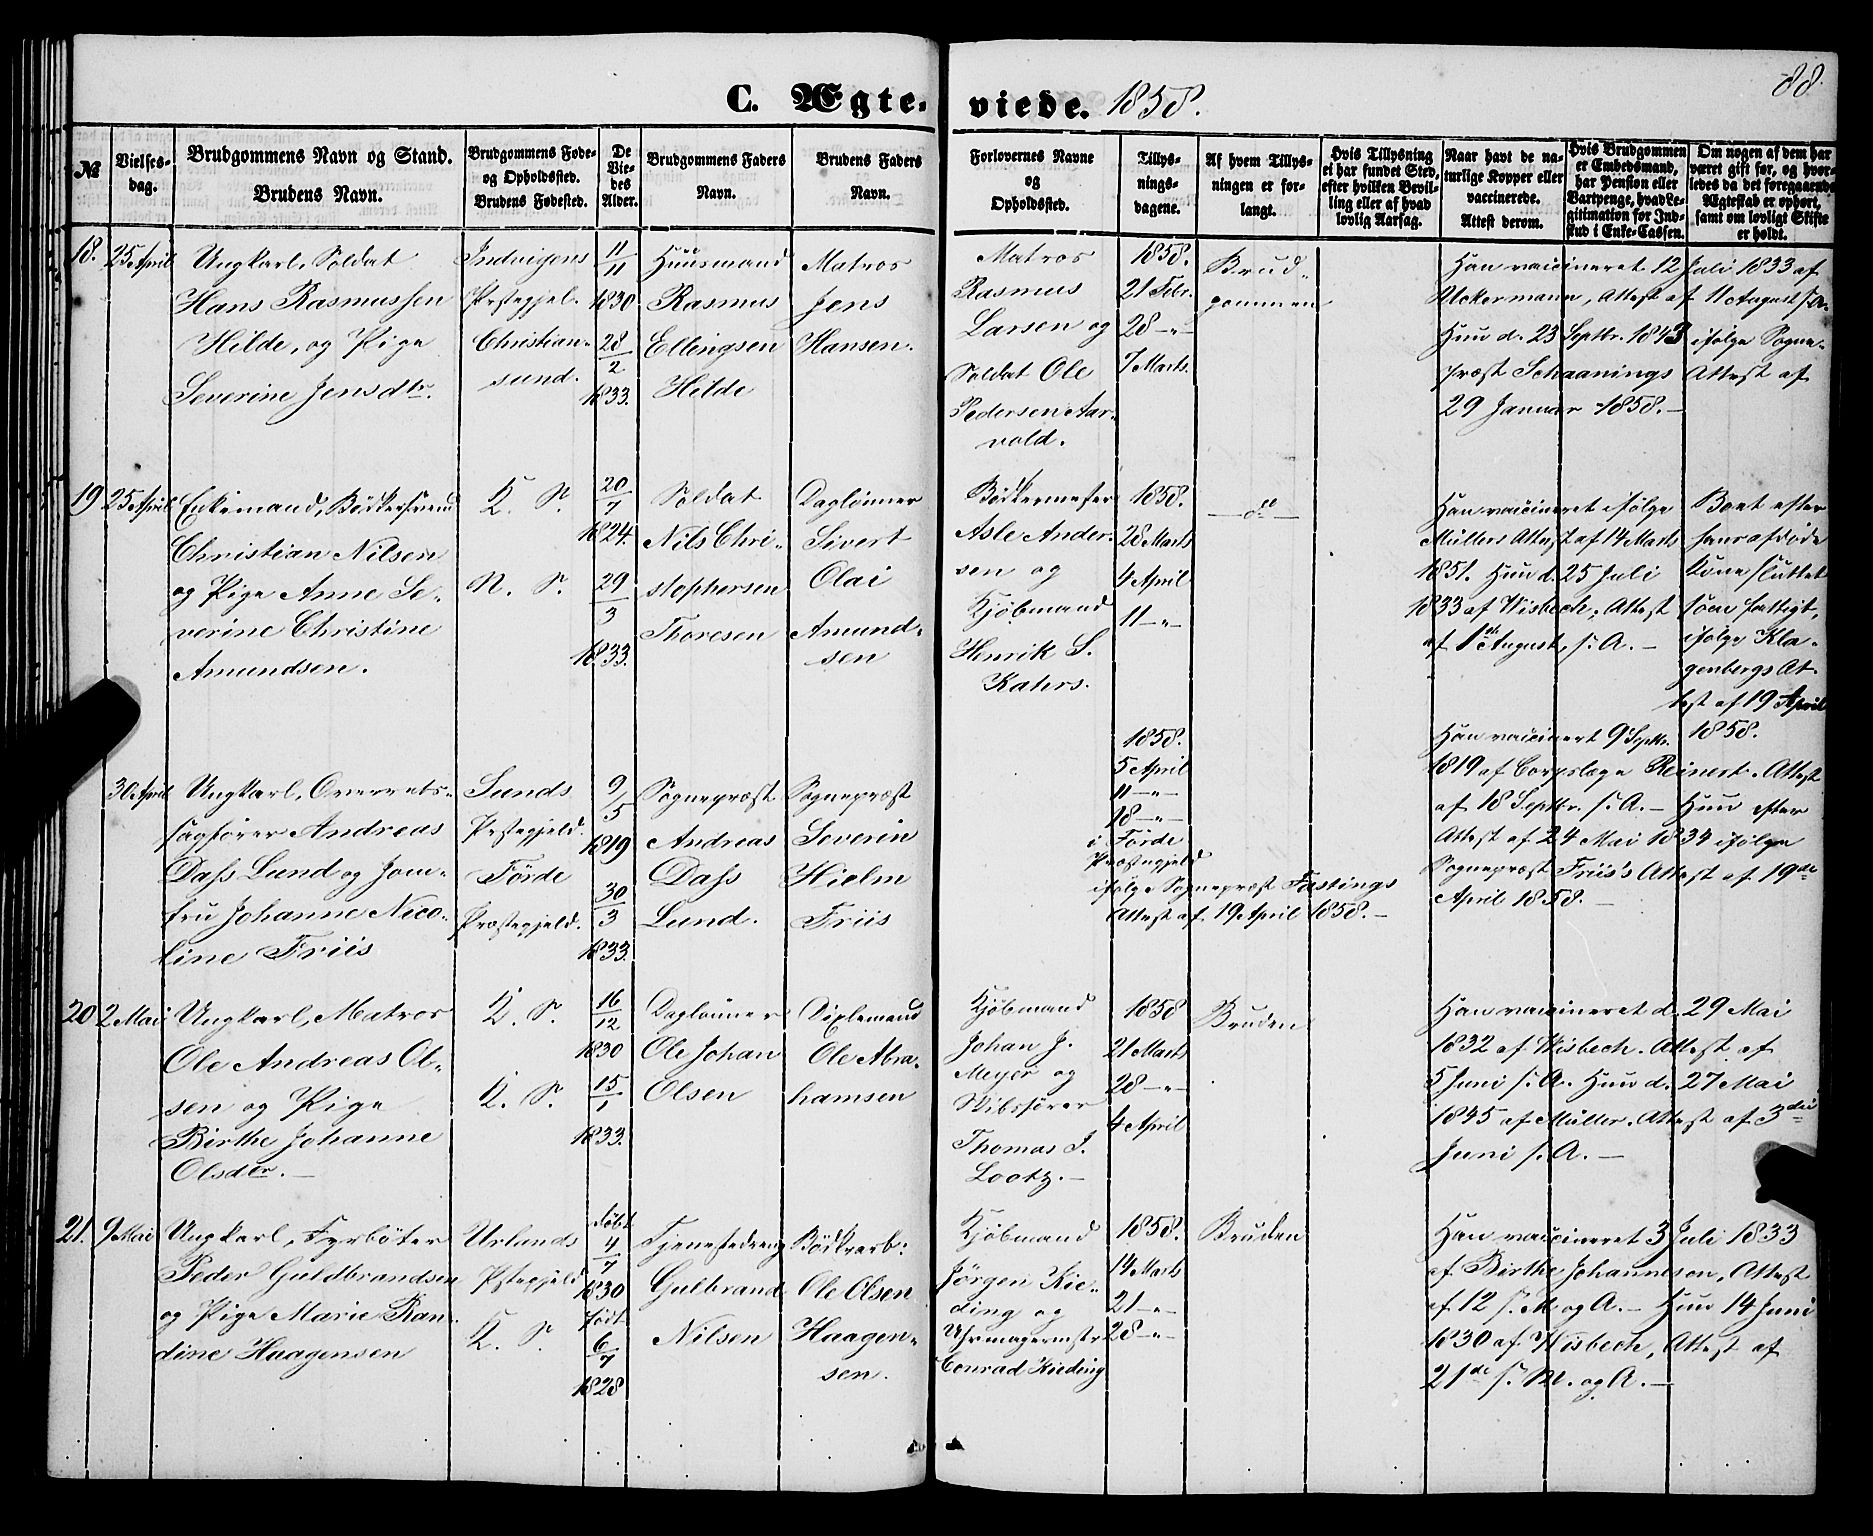 C. Ægte-
viede. 1858.
88
№
Vielses-
dag.
Brudgommens Navn og Stand.
Brudens Navn.
Brudgommens Føde-
og Opholdssted.
Brudens Fødested.
De
Vie-
des
Alder.
Brudgommens Faders
Navn.
Brudens Faders
Navn.
Forlovernes Navne
og
Opholdssted.
Tillys-
nings-
dagene.
Af hvem Tillys-
ningen er for-
langt.
Hvis Tillysning
ei har fundet Sted,
efter hvilken Bevil-
ling eller af hvad
lovlig Aarsag.
Naar havt de na-
turlige Kopper eller
vaccinerede.
Attest derom.
Hvis Brudgommen
er Embedsmand,
har Pension eller
Vartpenge, hvad Le-
gitimation for Ind-
skud i Enke-Cassen.
Om nogen af dem har
været gift før, og hvor-
ledes da det foregaaende
Ægteskab er ophørt,
samt om lovligt Skifte
er holdt.
18.
25 April
Ungkarl, Soldat
Hans Rasmussen
Hilde, og Pige
Severine Jensdtr.
Indvigens
Pæstegjel.
Christian-
sund.
11/11
1830
28/2
1833.
Huusmand
Rasmus
Ellingsen
Hilde
Matros
Jens
Hansen.
Matros
Rasmus
Larsen og
Soldat Ole
Pedersen Aar-
vold.
1858.
21 Febr.
28 -"-
7 Marts.
Brud-
gommen
Han vaccineret 12 Juli 1833 af
Uckermann, Attest af 11 August s. A.
Hun d. 23 Septbr. 1843 ifølge Sogne-
præst Schaanings Attest af
29 Januar 1858. -
19
25 April
Enkemand, Bödkersvend
Christian Nilsen
og Pige Anne Se-
verine Christine
Amundsen.
K. S.
N. S.
20/7
1824.
29/3
1833.
Soldat
Nils Chri-
stophersen
Thoresen
Daglønner
Sivert
Olai
Amund-
sen
Bödkermester
Asle Ander-
sen og
Kjöbmand
Henrik S.
Kahrs.
1858.
28 Marts
4 April
11 -"-
- do -
Han vaccineret ifølge
Müllers Attest af 14 Marts
1851. Hun d. 25 Juli
1833 af Wisbech, Attest
af 1ste August s. A. -
Boet efter
hans afdøde
Kone sluttet
som fattigt,
ifølge Kla-
genbergs At-
test af 19 April
1858.
30 April
Ungkarl, Overrets-
sagfører Andreas
Dass Lund og Jom-
fru Johanne Nico-
line Friis
Sunds
Pstegjeld.
Förde
Præstegjeld.
9/5
1819
30/3
1833.
Sognepræst
Andreas
Dass
Lund.
Sognepræst
Severin
Hielm
Friis
1858.
5 April
11 -"-
18 -"-
i Förde
Præstegjeld
ifølge Sognepræst Fastings
Attest af 19 April 1858. -
Han vaccineret 9 Septbr.
1819 af Corpslæge Reinert. Attest
af 18 Septbr. s. A. - Hun efter
Attest af 24 Mai 1834 ifølge
Sognepræst Friis's Attest af 19de
April 1858. -
20
2 Mai
Ungkarl, Matros
Ole Andreas Ol-
sen og Pige
Birthe Johanne
Olsdtr. -
K. S.
K. S.
16/12
1830
15/1
1833.
Daglønner
Ole Johan
Olsen
Ole Abra-
hamsen
Kjöbmand
Johan J.
Meyer og
Skibsförer
Thomas J.
Lootz. -
1858
21 Marts
28 -"-
4 April
Bruden
Han vaccineret d. 29 Mai
1832 af Wisbech. Attest af
5 Juni s. A. Hun d. 27 Mai
1845 af Müller. Attest af 3die
Juni s. A. -
21.
9 Mai
Ungkarl, Fyrböter
Peder Guldbrandsen
og Pige Marie Ran-
dine Haagensen
Urlands
Pstegjeld
K. S.
døbt
4/7
1830
født
6/7
1828
Tjenestedreng
Gulbrand
Nilsen
Bödkrarb:
Ole Olsen
Haagen-
sen.
Kjöbmand
Jørgen Kie-
ding og
Uhrmagermstr
Conrad Kieding
1858.
14 Marts
21 -"-
28 -"-
Bruden
Han vaccineret 3 Juli 1833
af Birthe Johanneson, Attest
af 12 s. M. og A. - Hun 14 Juni
1830 af Wisbech, Attest af
21de s. M. og A. -